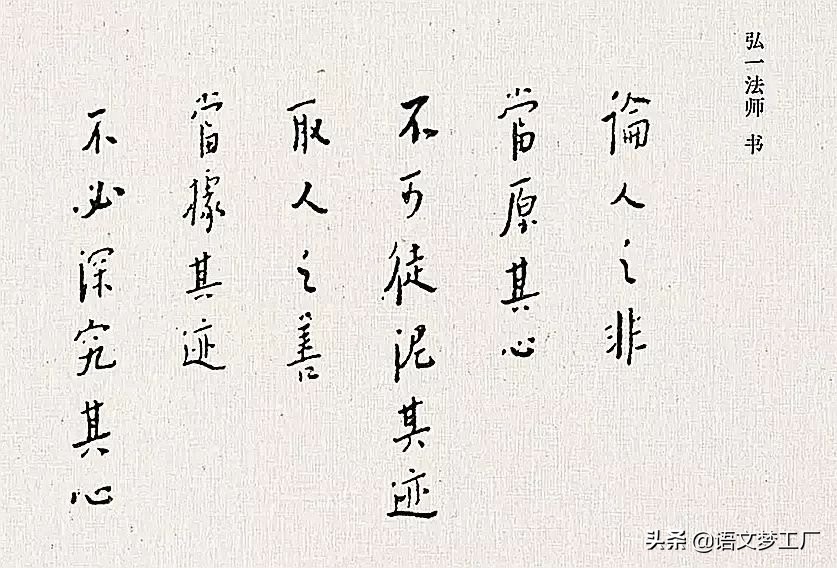 弘一法师 书
論人之非
當原其心
不可徒泥其迹
取人之善
當據其迹
不必深究其心
头条 @语文梦工厂